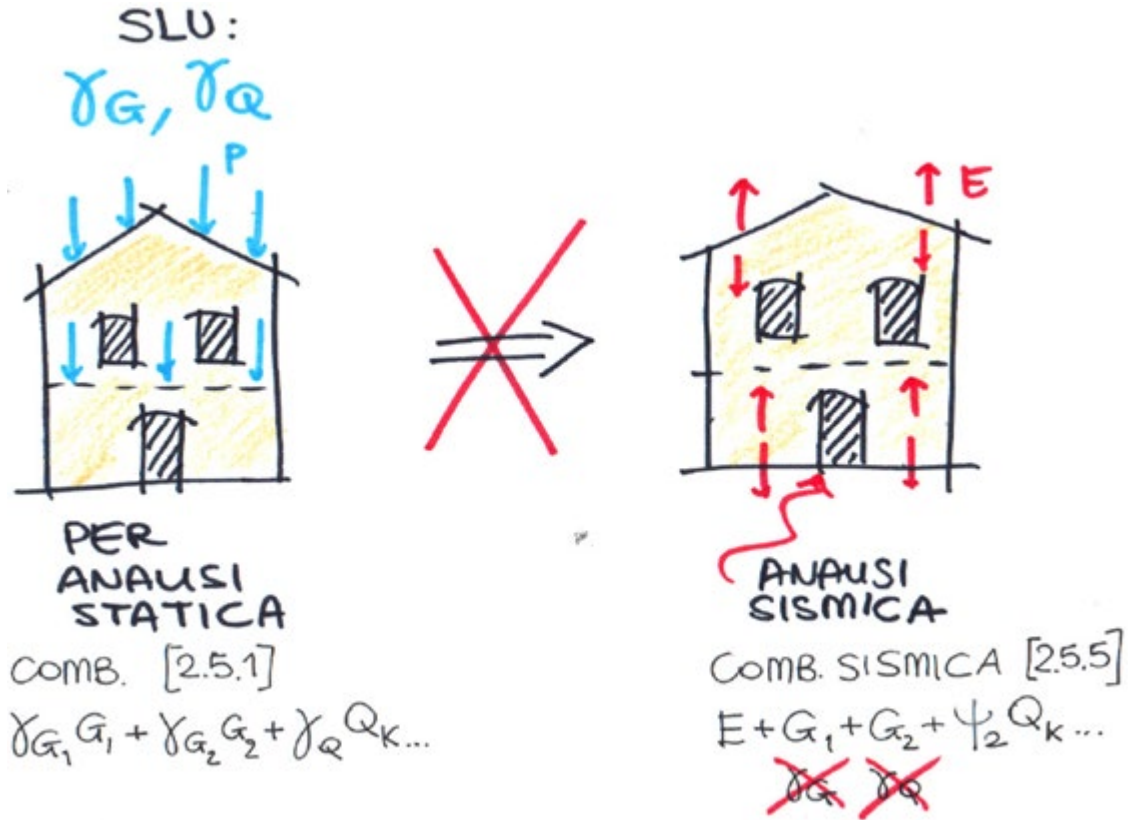 SLU:
γG, γQ
P
E
PER
ANALISI
STATICA
COMB. [2.5.1]
γG₁ G₁ + γG₂ G₂ + γQ QK...
ANALISI
SISMICA
COMB. SISMICA [2.5.5]
E + G₁ + G₂ + ψ₂ QK...
γG γQ